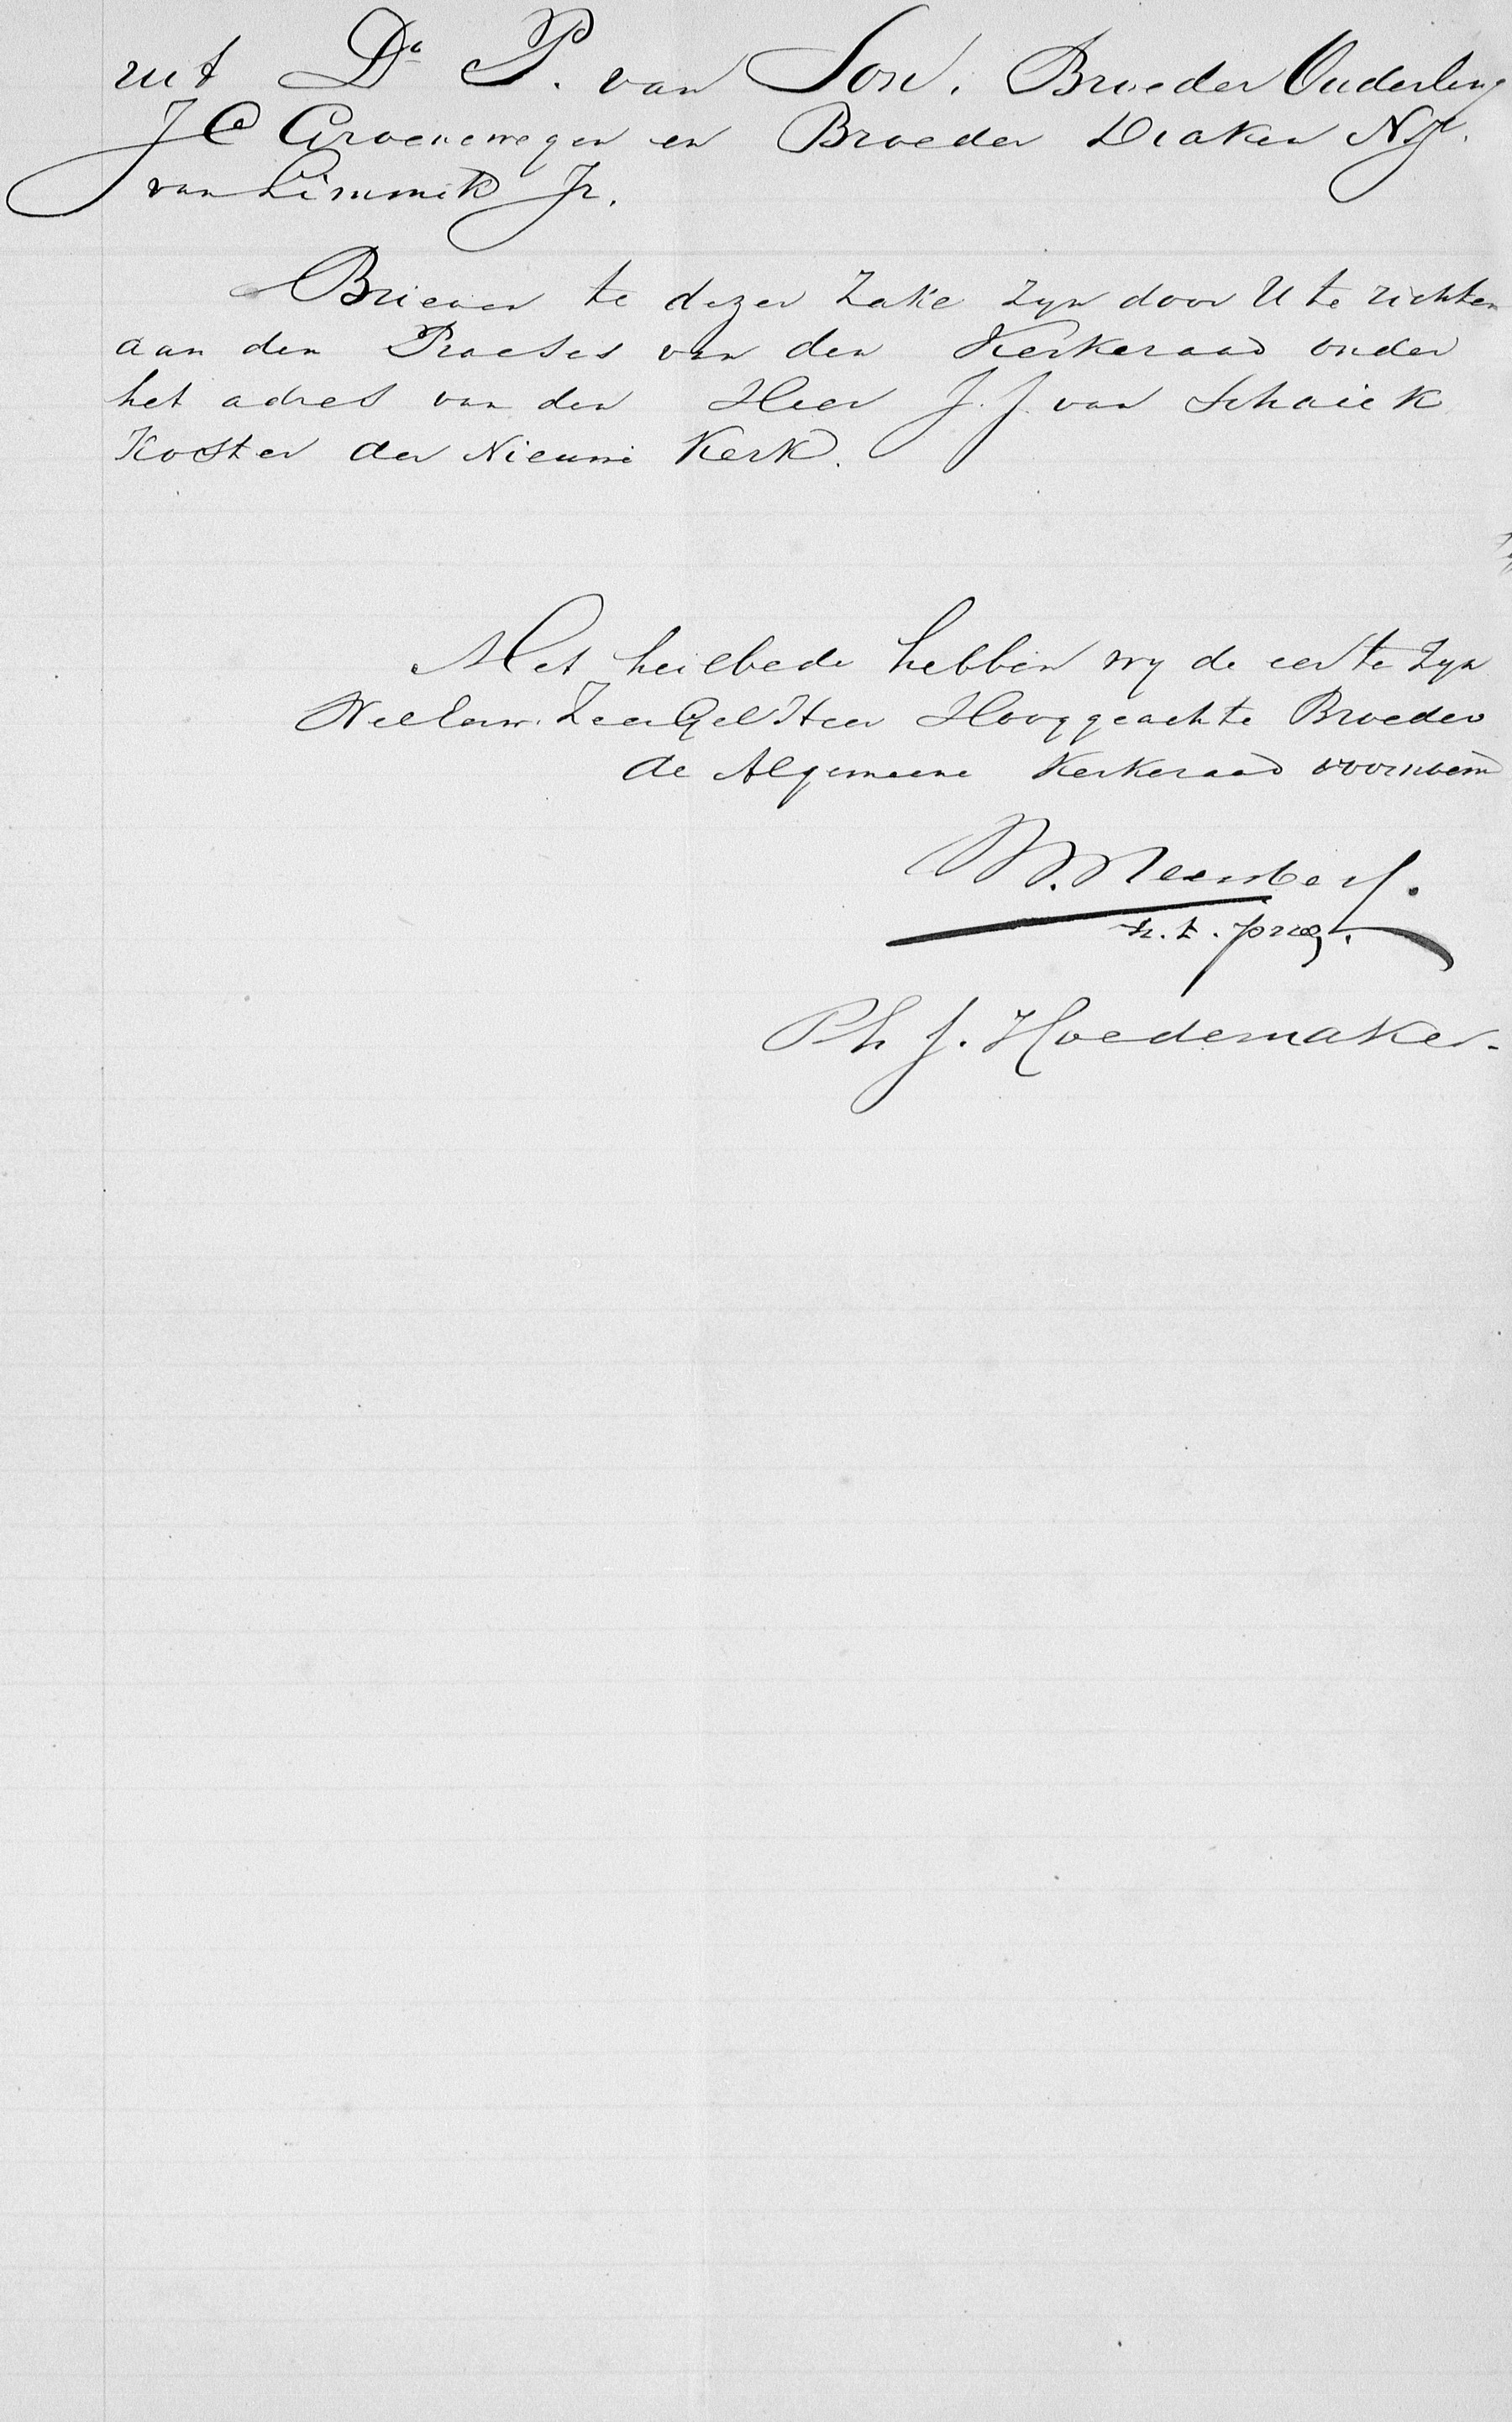 uit Ds P. van Son, Broeder Ouderling
J C Groenewegen en Broeder Diaken
van Limmik Jr.
Brieven te dezer zake zyn door U te richten
aan den Praeses van den Kerkeraad onder
het adres van den Heer J. J. van Schaick
Koster der Nieuwe Kerk.
Met heilbede hebben wy de eer te zyn
WelEerw. ZeerGel Heer Hooggeachte Broeder
de Algemeene Kerkeraad voornoemd
h. t. praes.
Ph J. Hoedemaker.